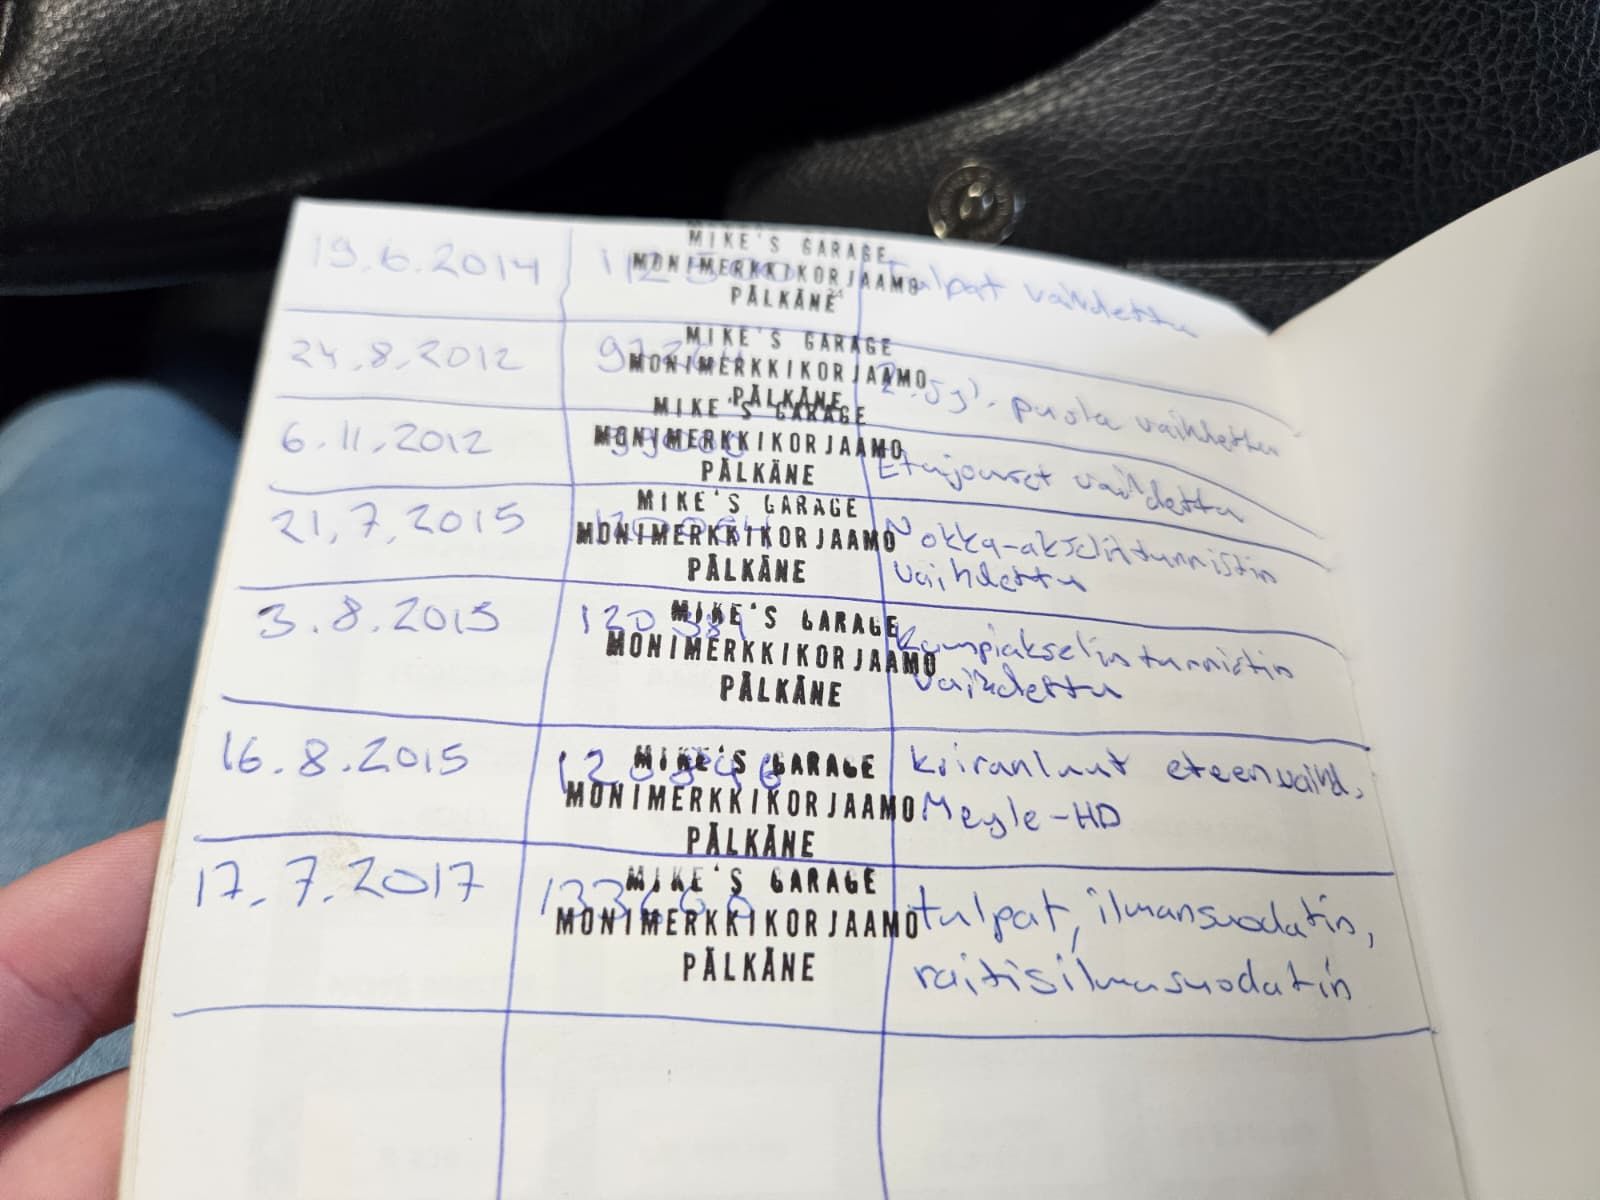 19.6.2014
MIKE'S GARAGE
MONIMERKKIKORJAAMO
PÄLKÄNE
Tulpat vaihdettu
24.8.2012
MIKE'S GARAGE
MONIMERKKIKORJAAMO
PÄLKÄNE
puola vaihdettu
6.11.2012
MIKE'S GARAGE
MONIMERKKIKORJAAMO
PÄLKÄNE
Etujouset vaihdettu
21.7.2015
MIKE'S GARAGE
MONIMERKKIKORJAAMO
PÄLKÄNE
Nokka-akselin tunnistin
vaihdettu
3.8.2015
MIKE'S GARAGE
MONIMERKKIKORJAAMO
PÄLKÄNE
Kampiakselin tunnistin
vaihdettu
16.8.2015
MIKE'S GARAGE
MONIMERKKIKORJAAMO
PÄLKÄNE
Koiranluut eteen vaihd.
Meyle-HD
17.7.2017
MIKE'S GARAGE
MONIMERKKIKORJAAMO
PÄLKÄNE
tulpat, ilmansuodatin,
raitisilmasuodatin